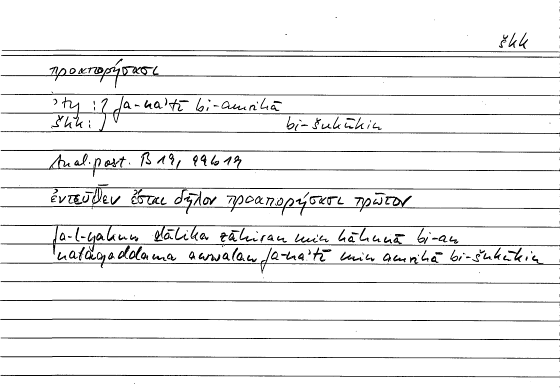 škk
προαπορήσασι
ʾty : } fa-naʾtī bi-amrihā
škk : } bi-šukūkin
Anal. post. B 19, 99b19
ἐντεῦθεν ἔσται δῆλον προαπορήσασι πρῶτον
fa-l-yakun ḏālika ẓāhiran min hāhunā bi-an
nataqaddama awwalan fa-naʾtī min amrihā bi-šukūkin